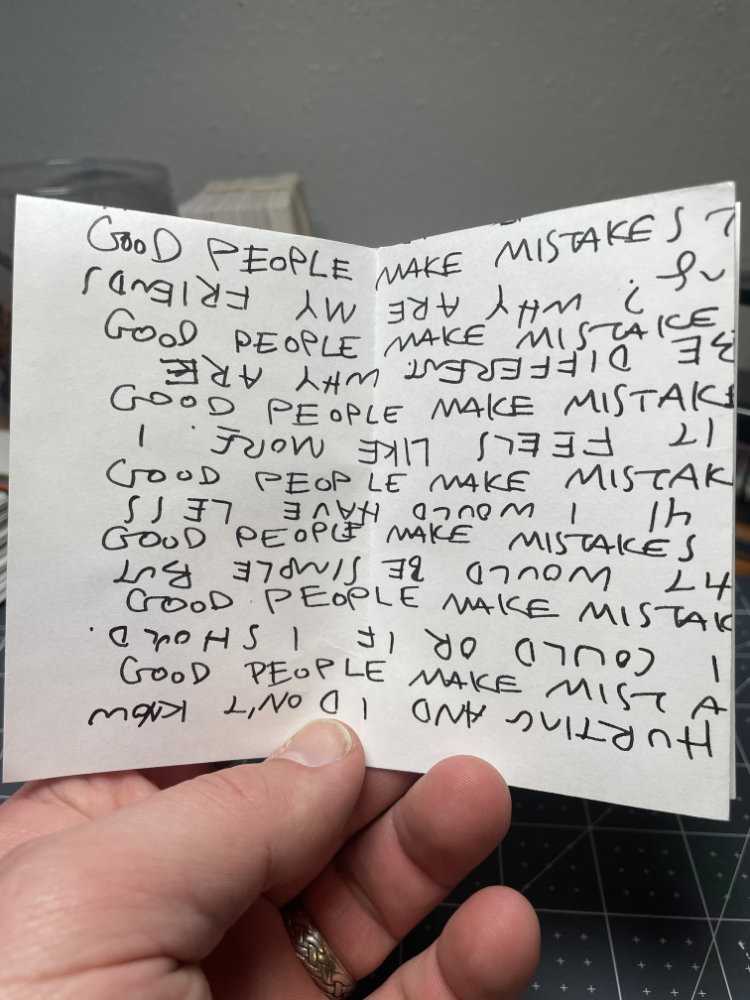 GOOD PEOPLE MAKE MISTAKES
? WHY ARE MY FRIENDS
GOOD PEOPLE MAKE MISTAKE
BE DIFFERENT WHY ARE
GOOD PEOPLE MAKE MISTAKE
IT FEELS LIKE MORE. I
GOOD PEOPLE MAKE MISTAK
I WOULD HAVE LESS
GOOD PEOPLE MAKE MISTAKES
IT WOULD BE SIMPLE BUT
GOOD PEOPLE MAKE MISTAK
I COULD OR IF I SHOULD.
GOOD PEOPLE MAKE MISTA
HURTING AND I DON'T KNOW